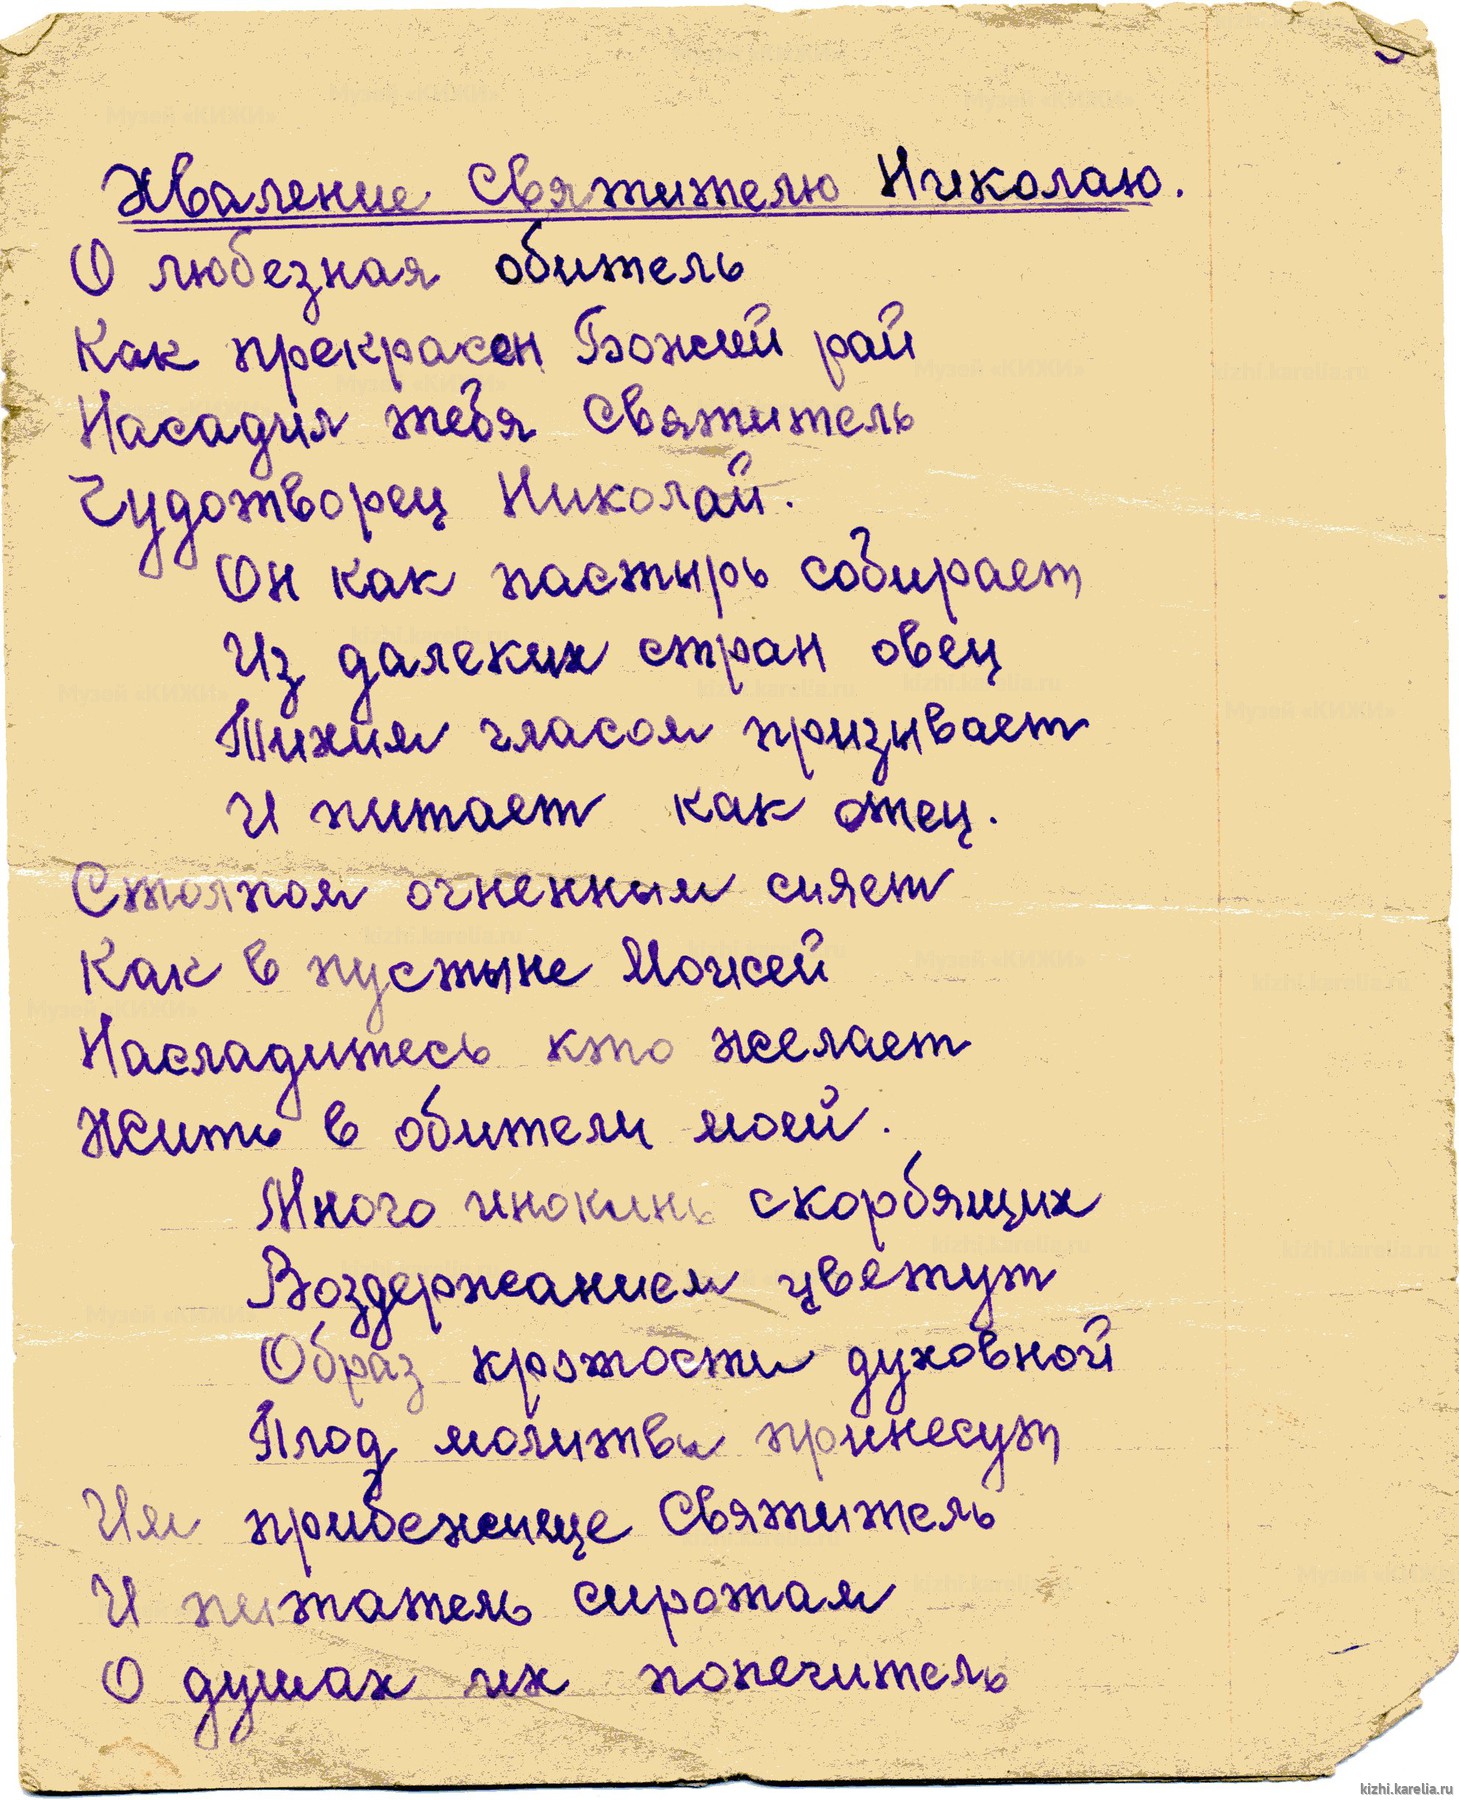 Хваление Святителю Николаю.
О любезная обитель
Как прекрасен Божий рай
Насадил тебя Святитель
Чудотворец Николай.
Он как пастырь собирает
Из далеких стран овец
Тихим гласом призывает
И питает как отец.
Столпом огненным сияет
Как в пустыне Моисей
Насладитесь кто желает
Жить в обители моей.
Много инокинь скорбящих
Воздержанием цветут
Образ кротости духовной
Плод молитвы принесут
Им прибежище Святитель
И питатель сиротам
О душах их попечитель
kizhi.karelia.ru